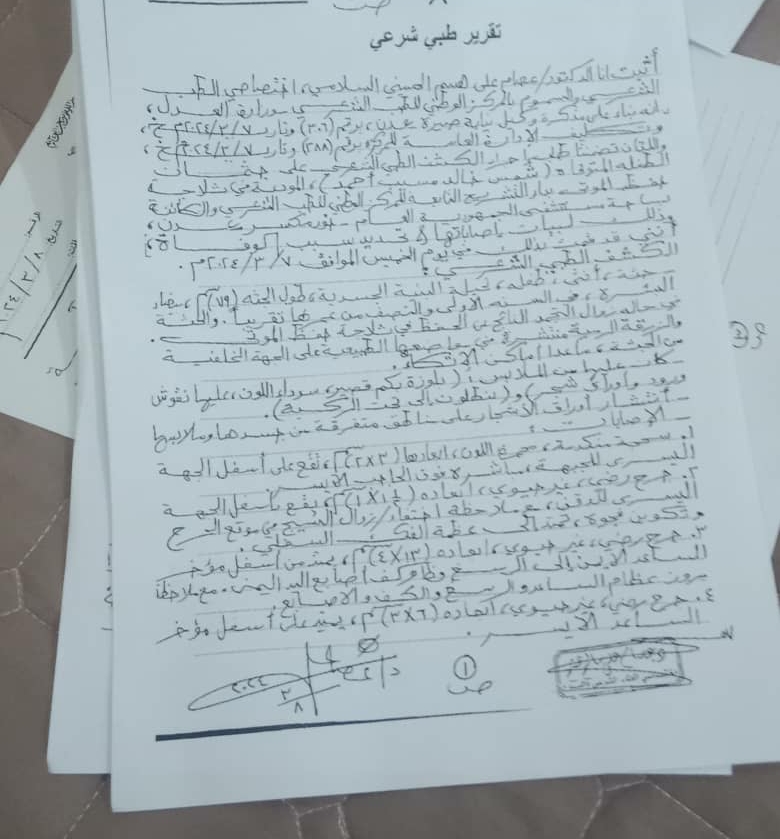 تقرير طبي شرعي
أثبت أنا الدكتور/ عصام علي الحسني السلامي، اختصاصي الطب
الشرعي والسموم بالمركز الوطني للطب الشرعي بوزارة العدل،
بناء على مذكرة وكيل نيابة صيرة عدن، برقم (٣٠٦) وتاريخ ٢٠٢٤/٣/٧م،
وتكليف الإدارة العامة للمركز برقم (٢٨٨) وتاريخ ٢٠٢٤/٣/٧م،
واللتان تضمنتا طلب إجراء الكشف الطبي الشرعي على جثمان
الطفلة المتوفاة: (شمس خالد أحمد)، المودعة في ثلاجة
حفظ الموتى بدار التشريح التابعة للمركز الوطني للطب الشرعي والكائنة
بساحة مستشفى الجمهورية العام - خورمكسر - عدن،
وذلك لبيان إصاباتها وتحديد سبب الوفاة؛
أنني قد قمت بذلك في يوم الخميس الموافق ٢٠٢٤/٣/٧م.
الكشف الطبي الشرعي:
جثة، أنثى، طفلة، نحيلة البنية الجسدية، طول الجثة (٧٩) سم، بيضاء
البشرة، في السنة الأولى والنصف من عمرها تقريباً. والجثة
في حالة زوال التجمد الناتج عن الحفظ في ثلاجة حفظ الموتى.
والزرقة الرمية منتشرة في مواضعها الطبيعية على الجهة الخلفية
من الجثة، ماعدا أماكن الاتكاء.
كان عليها من الملابس: (بلوزة بكم قصير، سوداء اللون، عليها نقوش
ورود وأوراق شجر) و (بنطلون إلى تحت الركبة).
- انتشار أوراق الأشجار على مناطق متفرقة من جسدها وملابسها
- الإصابات:
١. سحجة متكدمة، اللون، أبعادها (٣×٢) سم، تقع على أسفل الجهة
اليسرى للجبهة، مباشرة فوق الحاجب الأيسر.
٢. جرح رضي، غير حيوي، أبعاده سم، يقع بأسفل الجهة
اليسرى للذقن، مع ملاحظة اختفاء/زوال النسيج من موقع الجرح
وتكوين فجوة، تمتد إلى عظمة الفك السفلي.
٣. جرح رضي، غير حيوي، أبعاده (١٣×٤) سم، يمتد من أسفل مؤخر
الساعد الأيمن إلى الرسغ وظاهر كف وأصابع اليد اليمنى، مع ملاحظة
بروز عظام الساعد والرسغ والكف والأصابع.
٤. جرح رضي، غير حيوي، أبعاده (٦×٣) سم، يمتد على أسفل مؤخر
الساعد الأيسر.
ص ①
٢٠٢٤
٣
٨